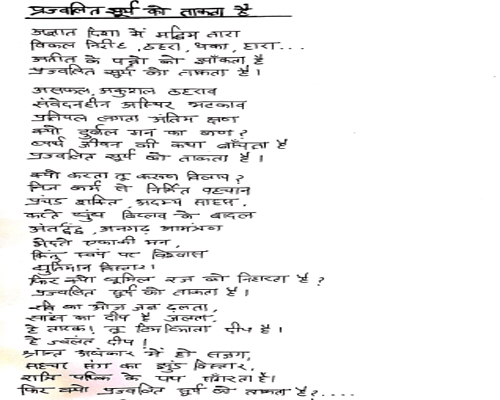 प्रज्वलित सूर्य को ताकता है
अज्ञात दिशा में मद्धिम तारा
विकल निरीह, ठहरा, थका, हारा...
अतीत के पन्नो को झाँकता है
प्रज्वलित सूर्य को ताकता है।
असफल, अकुशल ठहराव
संवेदनहीन अस्थिर भटकाव
प्रतिपल लगता अंतिम क्षण
क्यों दुर्बल मन का
व्यर्थ जीवन की कथा बाँचता है
प्रज्वलित सूर्य को ताकता है।
क्यों करता तू करुण विलाप?
निज कर्म से निर्मित पहचान
प्रचंड शक्ति, अदम्य साहस,
विप्लव के बादल
अंतर्द्वंद्व, अनगढ़ आमंत्रण
एकाकी मन,
किंतु स्वयं पर विश्वास
द्युतिमान विस्तार।
फिर क्यों धूमिल रज को निहारता है?
प्रज्वलित सूर्य को ताकता है।
रवि का ओज जब ढलता,
सांझ का दीप है जलता
हे तारक! तू टिमटिमाता दीप है।
हे ज्वलंत दीप।
अंधकार में हो सजग,
का विस्तार,
रात्रि पथिक के पथ है।
फिर क्यों प्रज्वलित सूर्य को ताकता है?....